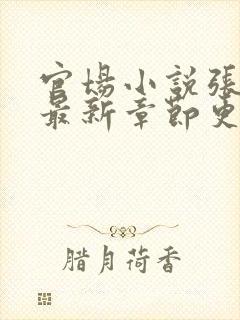 官場小說張
最新章節更
腊月荷香